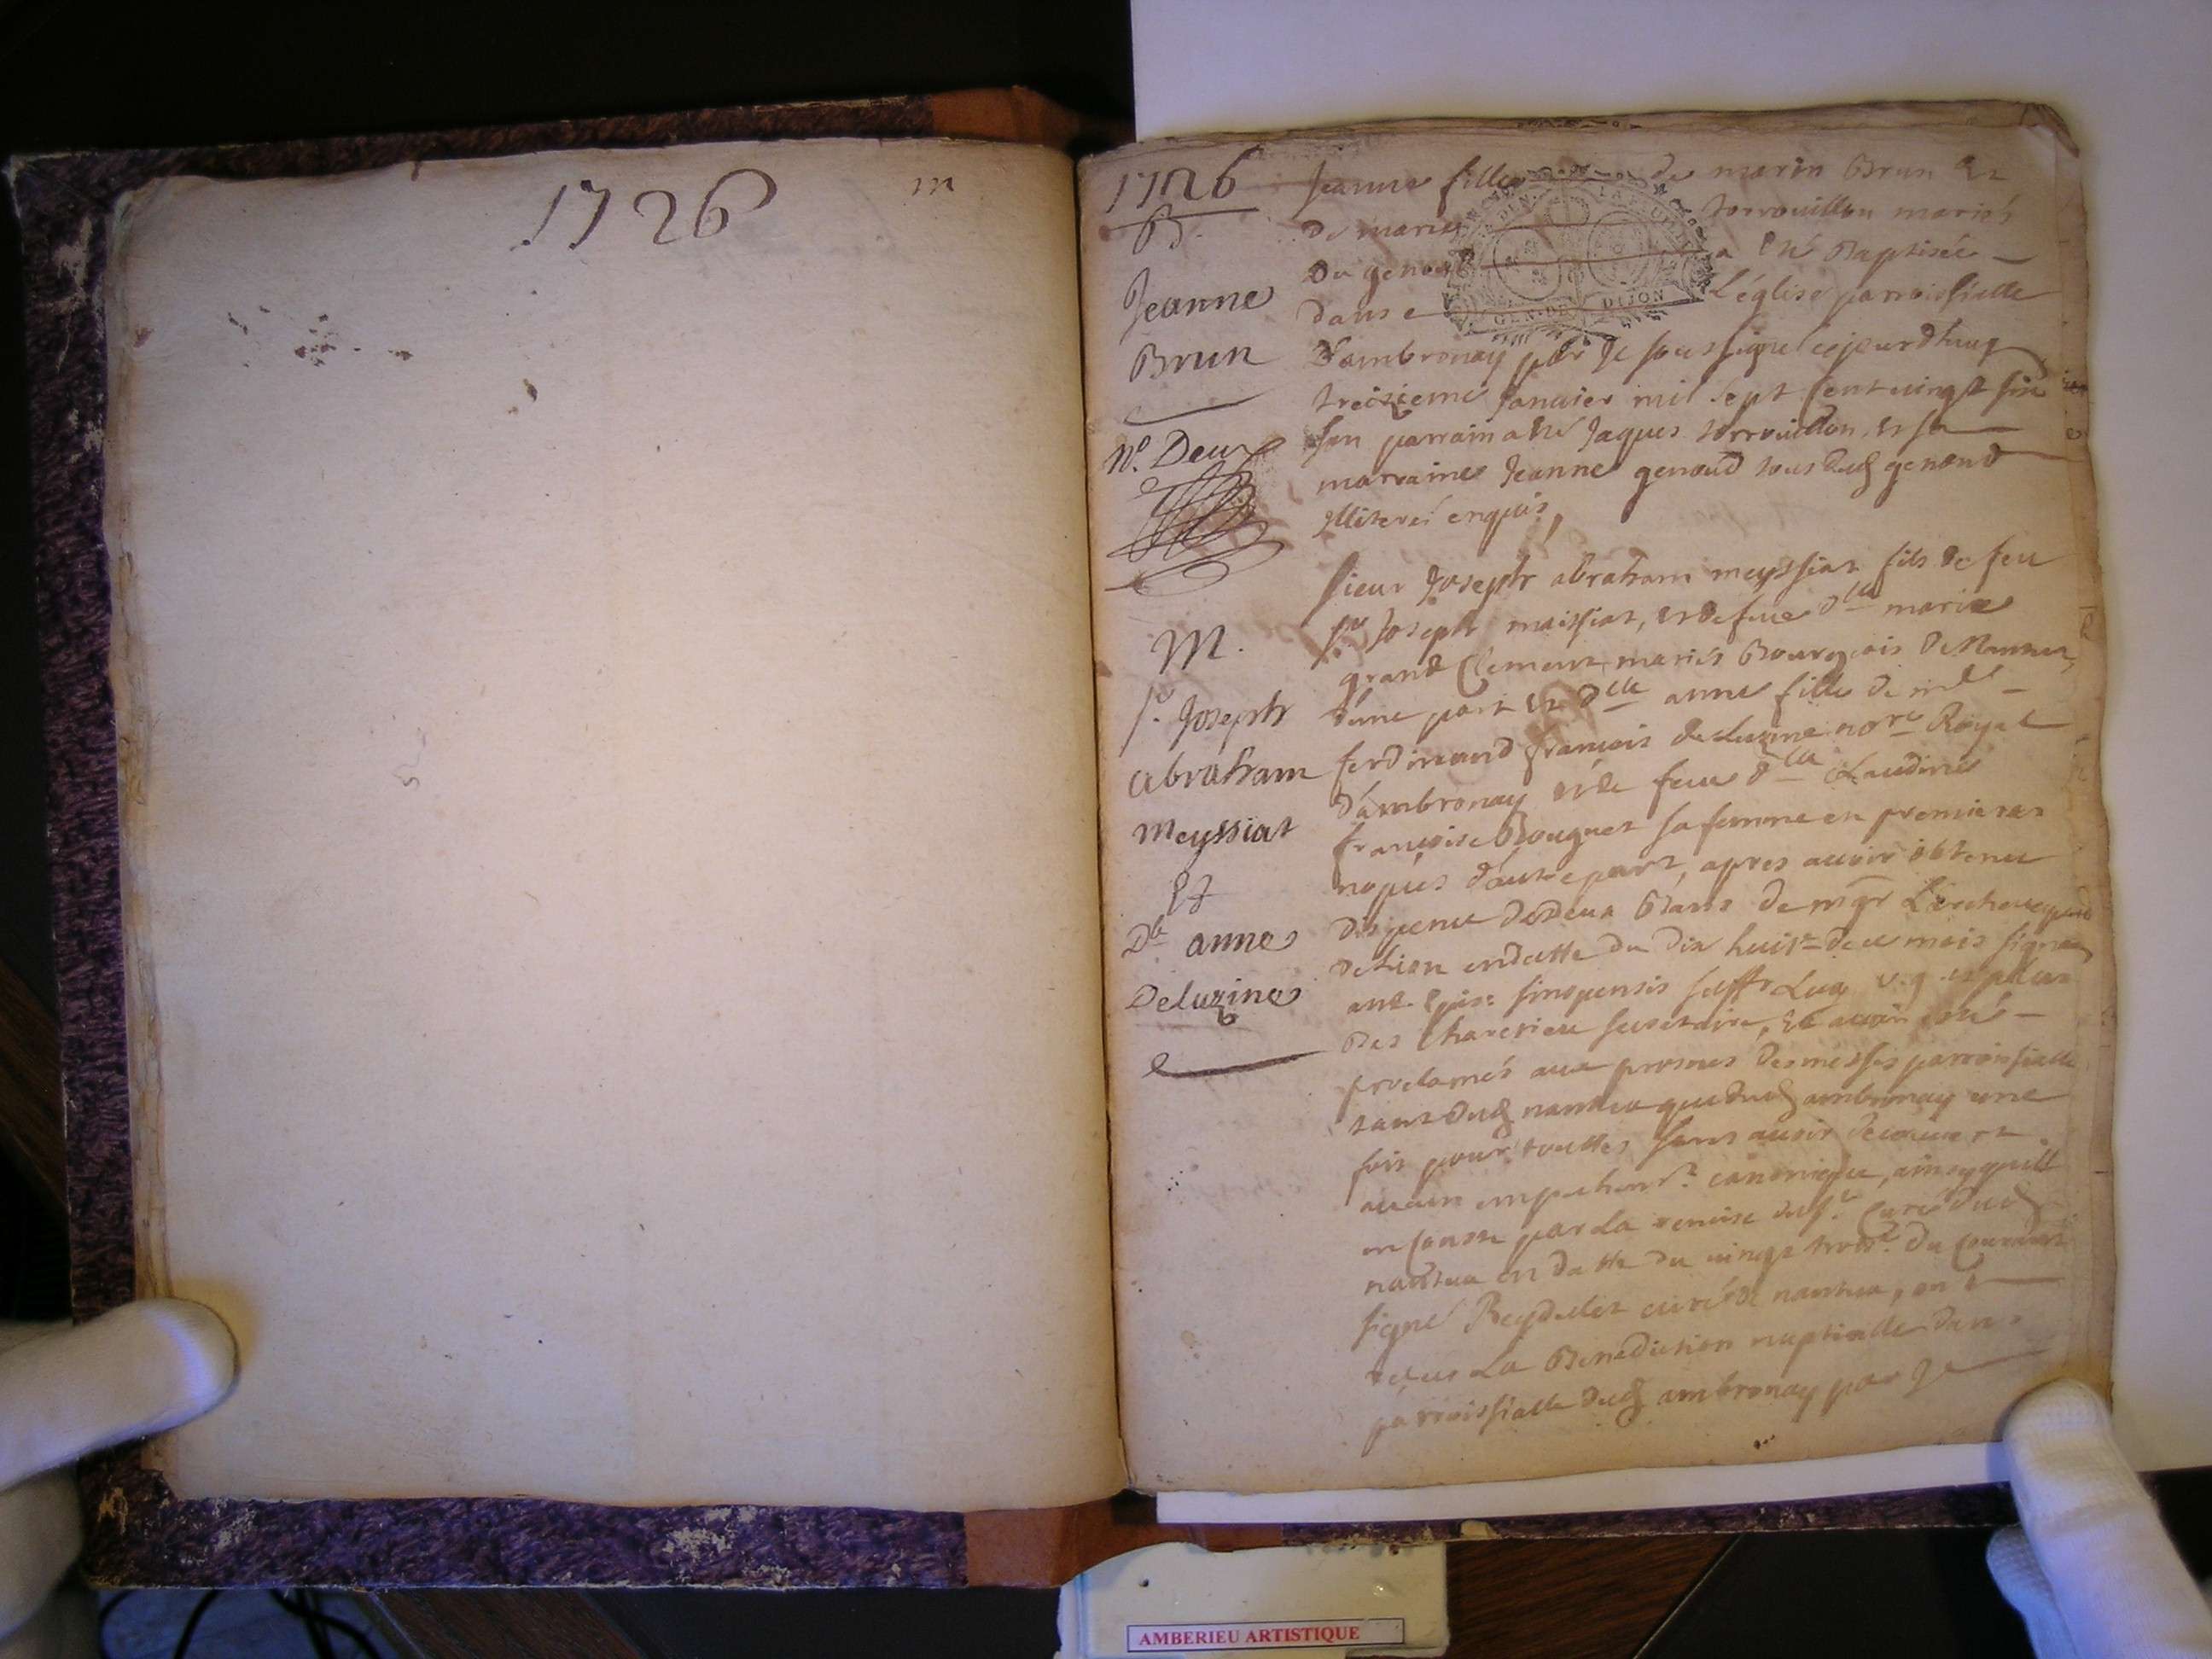 1726
m
1726
B.
Jeanne
Brun
N.° Deux
M.
Sr. Joseph
abraham
Meyssiat
Et
Dlle anne
Deluzines
Jeanne fille de marin Brun Et
De marie torrouillon mariés
Du genoud a Eté Baptisée
dans e L'église parroissialle
D'ambronay par Je soussigné cejourdhuy
treizieme Janvier mil sept cent vingt six
son parrain a Eté Jaques torrouillon, et sa
marraine Jeanne genoud tous dud genoud
Illiteré enquis,
GEN. DE DIJON
sieur Joseph abraham meyssiat fils de feu
sr Joseph maissiat, et de feue dlle marie
grand Clement mariés Bourgeois De Nantua,
d'une part Et dlle anne fille de
ferdinand francois deluzine nore Royal
d'ambronay et de feue dlle Claudine
francoise Bouguet sa femme en premieres
nopces d'autre part, apres auoir obtenu
dispence de deux Bans de mgr L'archeuesque
de Lion en datte du dix huit de ce mois signé
ant. Epis: sinopensis suffr. Lug v. g. et plus
Bas secretaire, Et auoir estés
proclamés aux prosnes des messes parroissialle
tant dud nantua que dud ambronay une
fois pour touttes sans auoir decouuert
aucun empechemt. canonique, ainsy quill
en conste par La remise du sr. Curé dud
nantua en datte du vingt trois.e du courant
signé Reydellet curé de nantua, on t
receus La Benediction nuptialle dans
parroissialle dud ambronay par Je
AMBERIEU ARTISTIQUE